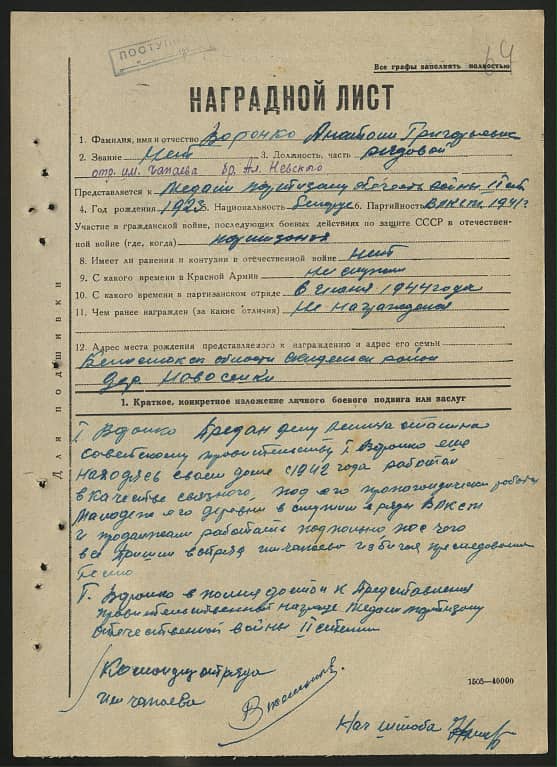 ПОСТУП
64
Все графы заполнять полностью
НАГРАДНОЙ ЛИСТ
1. Фамилия, имя и отчество Воронко Анатоли Григорьевич
2. Звание Нет 3. Должность, часть рядовой
отр. им. Чапаева бр. Ал. Невского
Представляется к Медали партизану отечеств войны II ст
4. Год рождения 1923 5. Национальность белорус 6. Партийность ВЛКСМ 1941 г
Участие в гражданской войне, последующих боевых действиях по защите СССР и отечествен-
ной войне (где, когда) партизанск
8. Имеет ли ранения и контузии в отечественной войне нет
9. С какого времени в Красной Армии не служил
10. С какого времени в партизанском отряде в июня 1944 года
11. Чем ранее награжден (за какие отличия) Не награждался
12. Адрес места рождения представляемого к награждению и адрес его семьи
Белостокск области Скидельски район
дер Новосёлки
Для подшивки
1. Краткое, конкретное изложение личного боевого подвига или заслуг
Т Воронко Предан делу Ленина Сталина
советскому правительству Т. Воронко еще
находясь своем доме с 1942 года работал
в качестве связного, под его пропогандическ работой
Молодежь его деревни вступили в ряды ВЛКСМ
и продолжали работать подпольно после чего
все пришли в отряд им Чапаева избигая преследования
Т. Воронко в полне достоин к Представления
правительственной награде Медали партизану
Отечественной войны II степени
Командир отряда
им Чапаева
Нач штаба
1505—40000